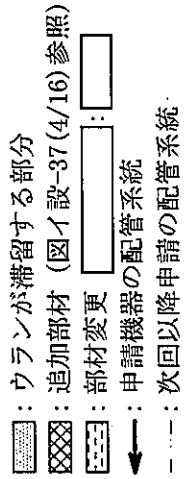 ：ウランが滞留する部分
：追加部材（図イ設-37(4/16)参照）
：部材変更　：
：申請機器の配管系統
：次回以降申請の配管系統